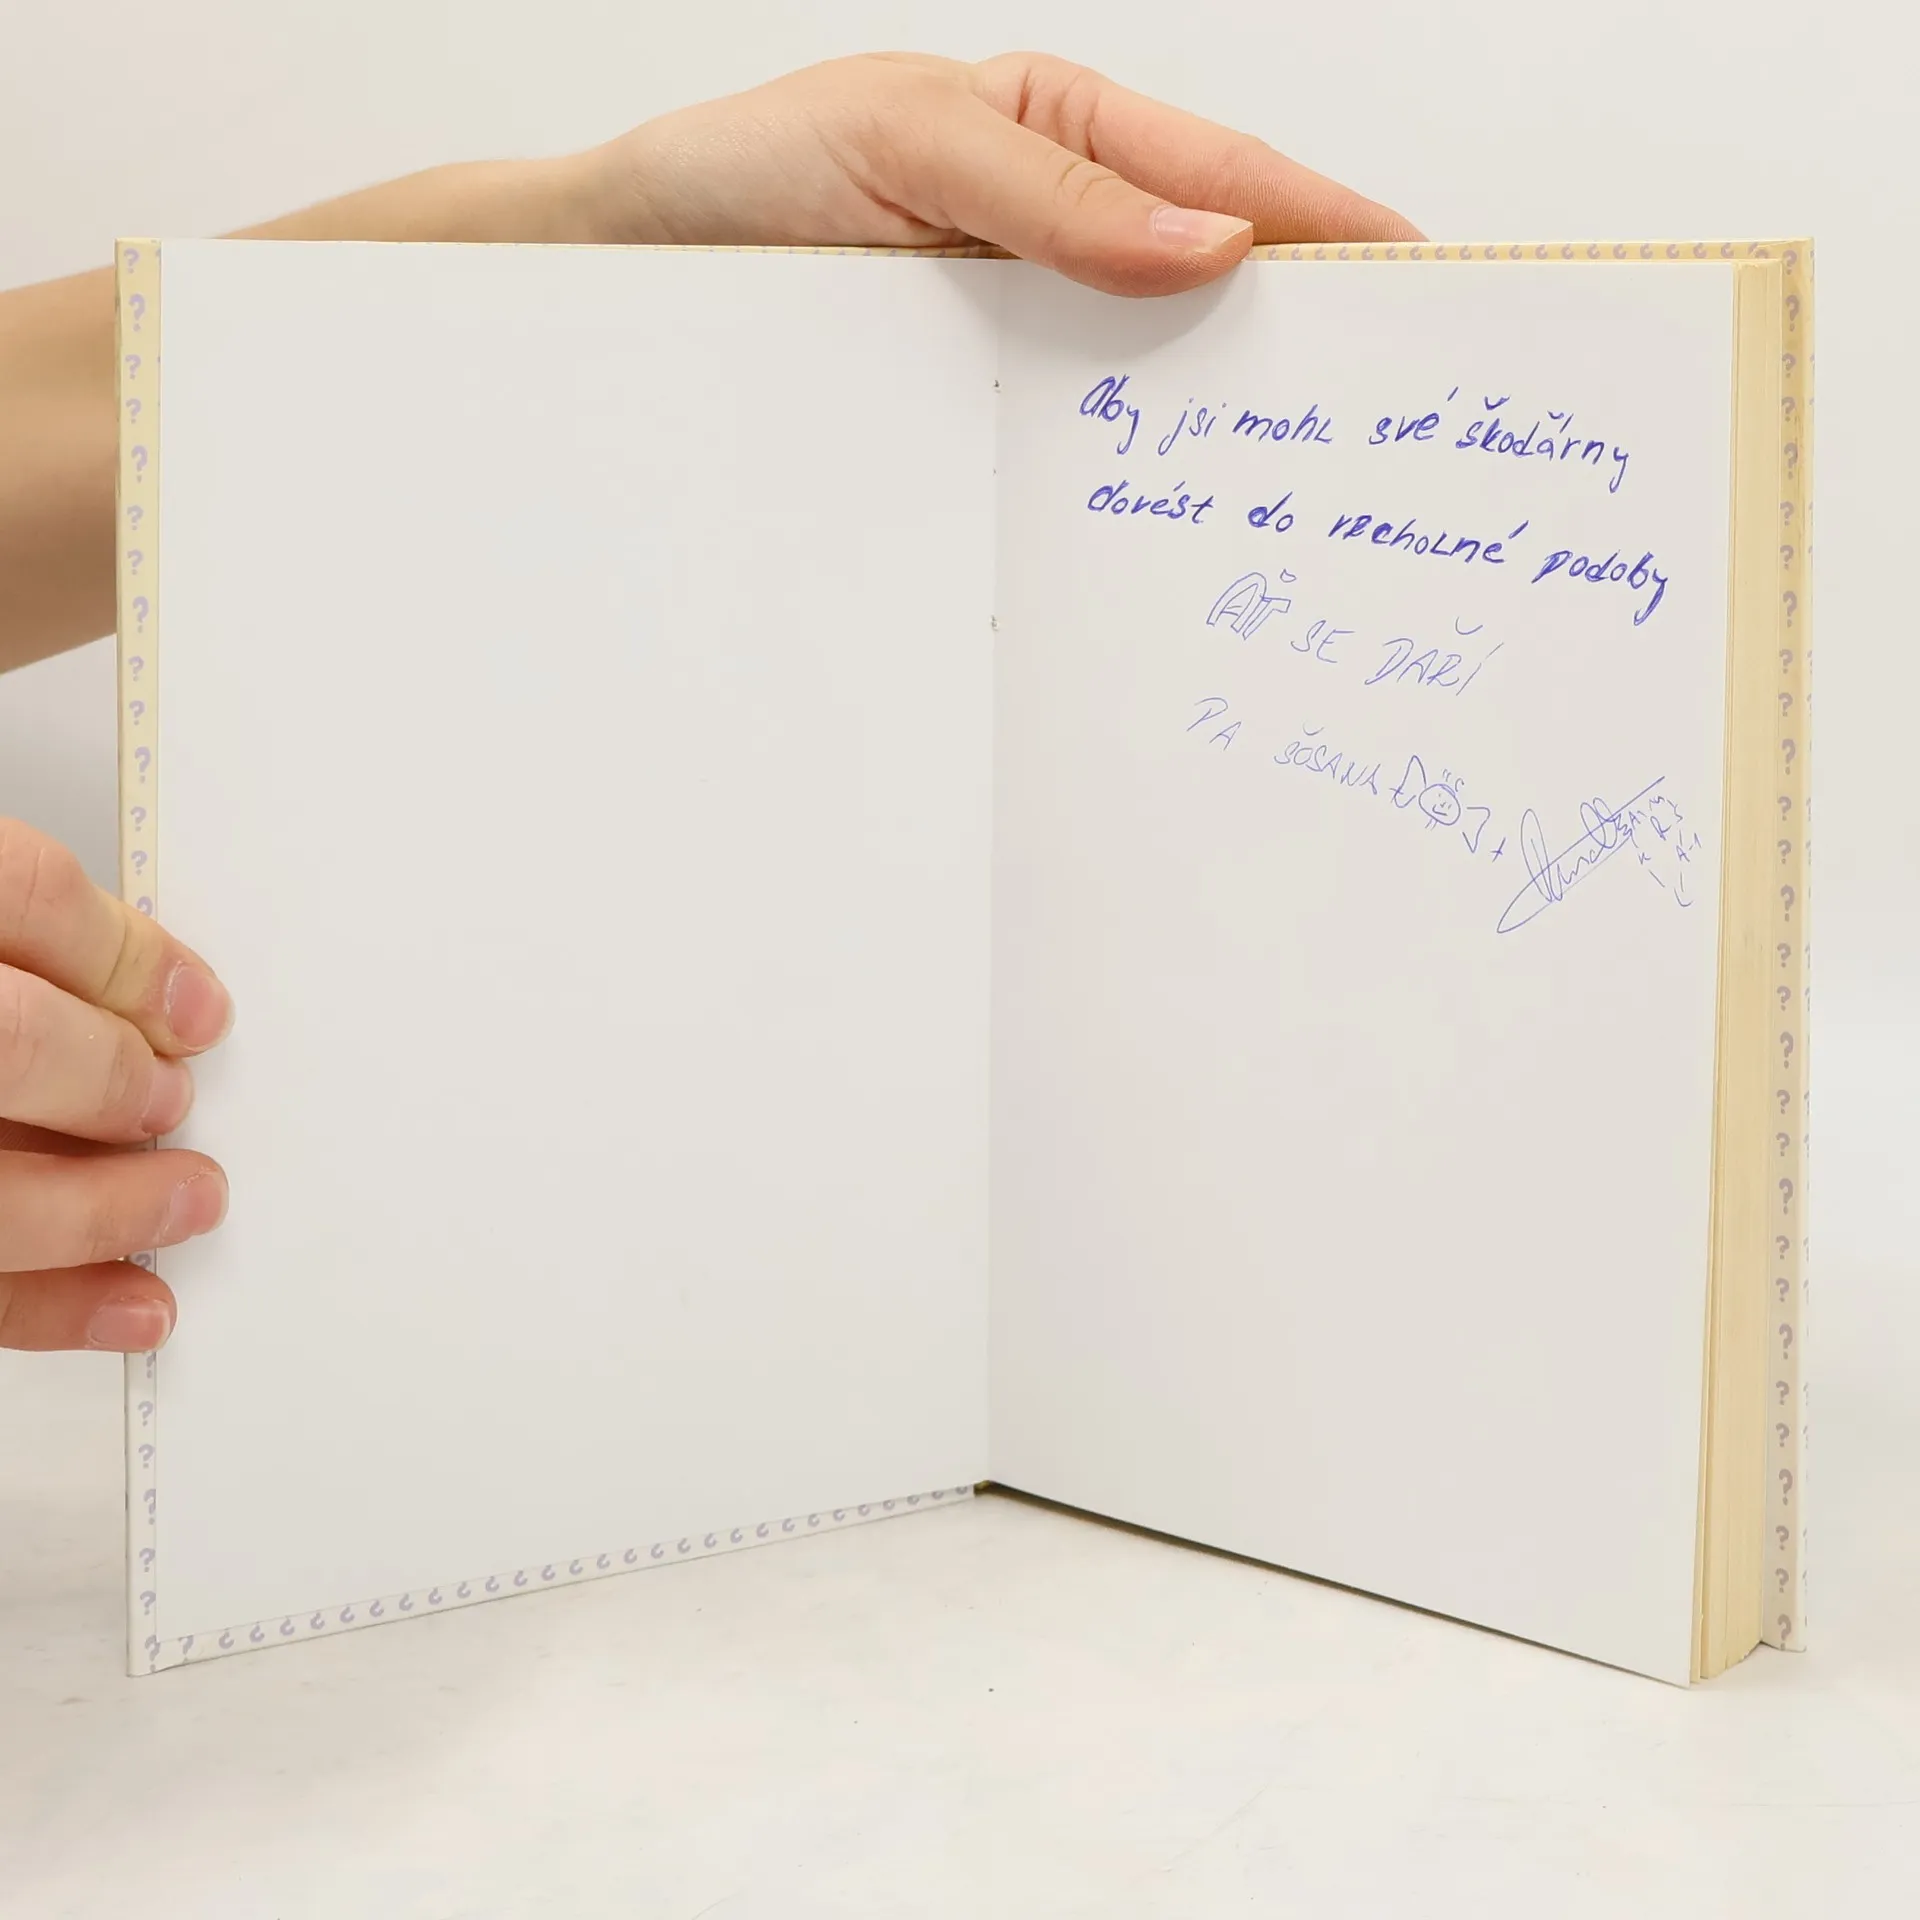 Aby jsi mohl své škodárny
dovést do vrcholné podoby
AŤ SE DAŘÍ
PA ŠÓSANA +